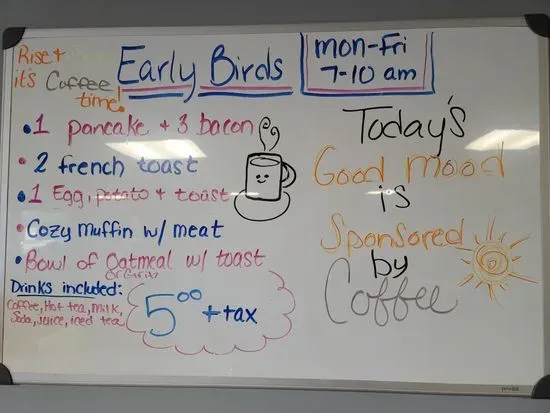 Rise +
it's Coffee
time!
Early Birds
mon-Fri
7-10 am
• 1 pancake + 3 bacon
• 2 french toast
• 1 Egg, potato + toast
• Cozy muffin w/ meat
• Bowl of Oatmeal w/ toast
or Grits
Drinks included:
Coffee, Hot tea, milk,
Soda, juice, iced tea
5⁰⁰ + tax
Today's
Good mood
is
Sponsored
by
Coffee